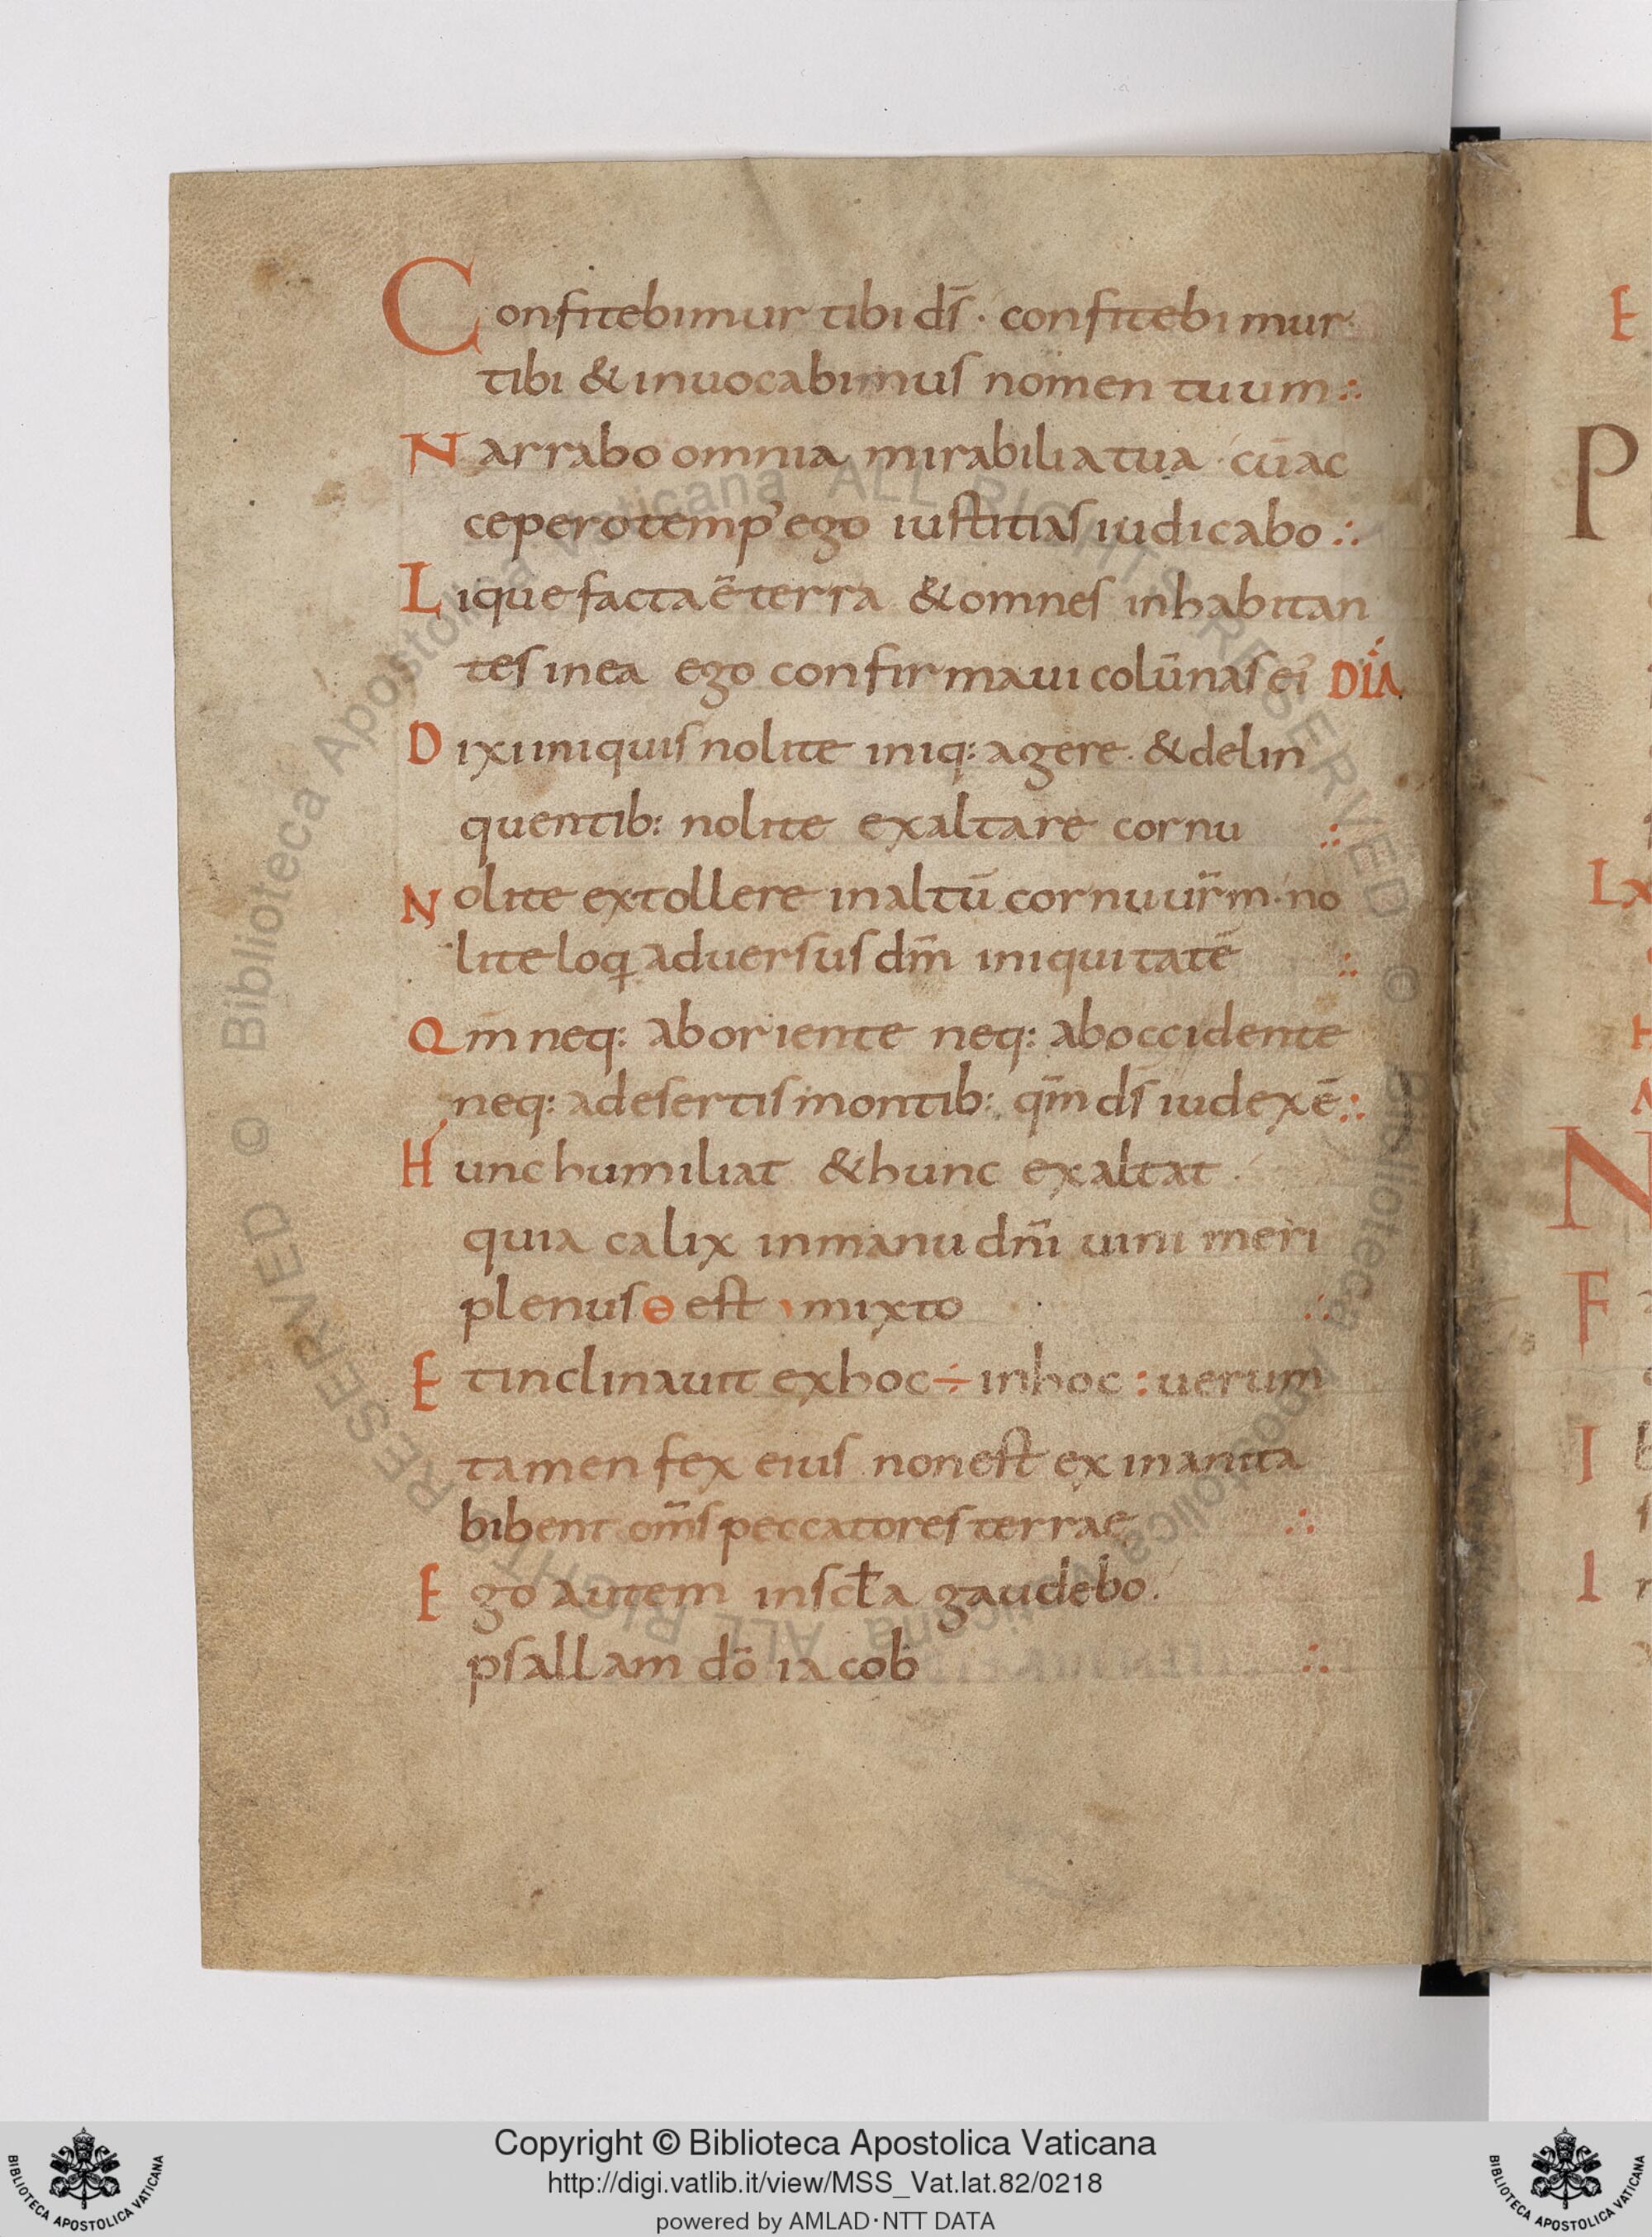 Confitebimur tibi ds̄ · confitebimur
tibi & inuocabimus nomen tuum ∴
Narrabo omnia mirabilia tua · cū ac
cepero temp᾽ ego iustitias iudicabo ∴
Lique facta ē terra & omnes inhabitan
tes in ea ego confirmaui colūnas ei᾽ DIA
Dixi iniquis nolite iniq: agere · & delin
quentib: nolite exaltare cornu ∴
Nolite extollere in altū cornu ur̄m · no
lite loqi aduersus dm̄ iniquitatē ∴
Qm neq: ab oriente neq: ab occidente
neq: a desertis montib: qm̄ ds̄ iudex ē ∴
Hunc humiliat & hunc exaltat ·
quia calix in manu dn̄i uini meri
plenus est mixto ∴
Et inclinauit ex hoc ÷ in hoc : uerum
tamen fex eius non est ex inanita
bibent om̄s peccatores terrae ∴
Ego autem in sct̄a gaudebo .
psallam dō iacob ∴
E
P
Lx
H
N
N
F
I
I
Copyright © Biblioteca Apostolica Vaticana
http://digi.vatlib.it/view/MSS_Vat.lat.82/0218
powered by AMLAD·NTT DATA
BIBLIOTECA APOSTOLICA VATICANA
BIBLIOTECA APOSTOLICA VATICANA
© Biblioteca Apostolica Vaticana ALL RIGHTS RESERVED © Biblioteca Apostolica Vaticana ALL RIGHTS RESERVED